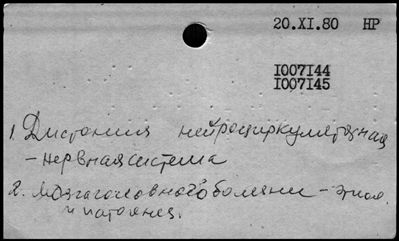 20.XI.80 НР
I007I44
I007I45
1. Дистония нейроциркулятарная
– нервная система
2. головного болезни – этиол.
и патогенез.